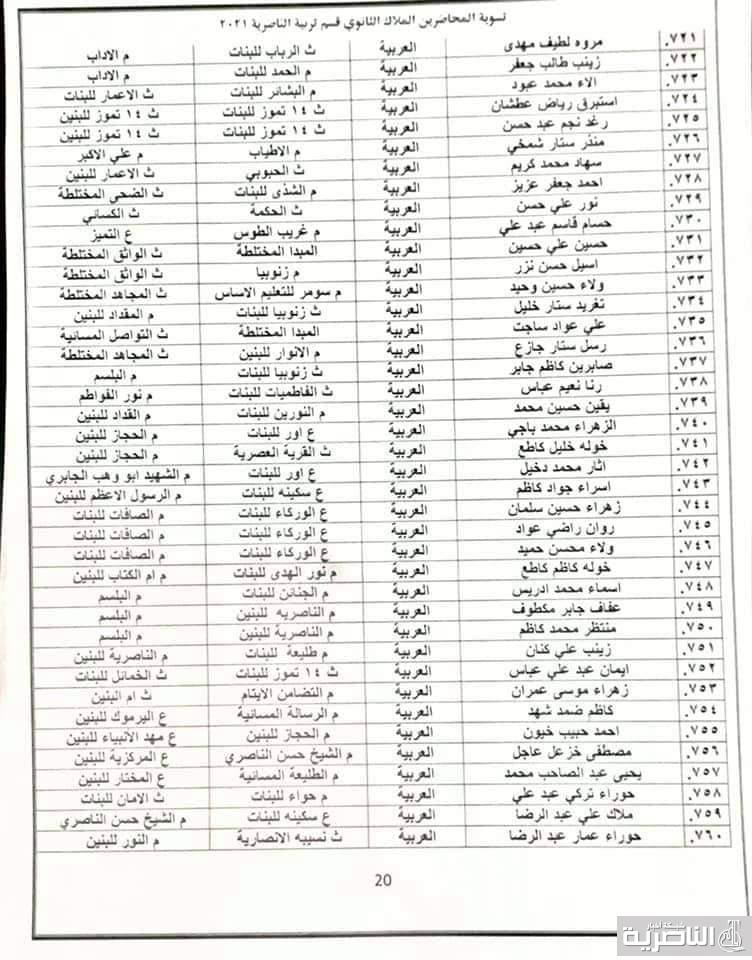 تسوية المحاضرين الملاك الثانوي قسم تربية الناصرية ٢٠٢١
٧٢١. مروه لطيف مهدي العربية ث الرباب للبنات م الاداب
٧٢٢. زينب طالب جعفر العربية م الحمد للبنات م الاداب
٧٢٣. الاء محمد عبود العربية م البشائر للبنات ث الاعمار للبنات
٧٢٤. استبرق رياض عطشان العربية ث ١٤ تموز للبنات ث ١٤ تموز للبنين
٧٢٥. رغد نجم عبد حسن العربية ث ١٤ تموز للبنات ث ١٤ تموز للبنين
٧٢٦. منذر ستار شمخي العربية م الاطياب م علي الاكبر
٧٢٧. سهاد محمد كريم العربية ث الحبوبي ث الاعمار للبنين
٧٢٨. احمد جعفر عزيز العربية م الشذى للبنات ث الضحى المختلطة
٧٢٩. نور علي حسن العربية ث الحكمة ث الكسائي
٧٣٠. حسام قاسم عبد علي العربية م غريب الطوس ع التميز
٧٣١. حسين علي حسين العربية المبدا المختلطة ث الواثق المختلطة
٧٣٢. اسيل حسن نزر العربية م زنوبيا ث الواثق المختلطة
٧٣٣. ولاء حسين وحيد العربية م سومر للتعليم الاساس ث المجاهد المختلطة
٧٣٤. تغريد ستار خليل العربية ث زنوبيا للبنات م المقداد للبنين
٧٣٥. علي عواد ساجت العربية المبدا المختلطة ث التواصل المسائية
٧٣٦. رسل ستار جازع العربية م الانوار للبنين ث المجاهد المختلطة
٧٣٧. صابرين كاظم جابر العربية ث زنوبيا للبنات م البلسم
٧٣٨. رنا نعيم عباس العربية ث الفاطميات للبنات م نور الفواطم
٧٣٩. يقين حسين محمد العربية م النورين للبنات م القداد للبنين
٧٤٠. الزهراء محمد باجي العربية ع اور للبنات م الحجاز للبنين
٧٤١. خوله خليل كاطع العربية ث القرية العصرية م الحجاز للبنين
٧٤٢. اثار محمد دخيل العربية ع اور للبنات م الشهيد ابو وهب الجابري
٧٤٣. اسراء جواد كاظم العربية ع سكينه للبنات م الرسول الاعظم للبنين
٧٤٤. زهراء حسين سلمان العربية ع الوركاء للبنات م الصافات للبنات
٧٤٥. روان راضي عواد العربية ع الوركاء للبنات م الصافات للبنات
٧٤٦. ولاء محسن حميد العربية ع الوركاء للبنات م الصافات للبنات
٧٤٧. خوله كاظم كاطع العربية م نور الهدى للبنات م ام الكتاب للبنين
٧٤٨. اسماء محمد ادريس العربية م الجنائن للبنات م البلسم
٧٤٩. عفاف جابر مكطوف العربية م الناصريه للبنين م البلسم
٧٥٠. منتظر محمد كاظم العربية م الناصرية للبنين م البلسم
٧٥١. زينب علي كنان العربية م طليعة للبنات م الناصرية للبنين
٧٥٢. ايمان عبد علي عباس العربية ث ١٤ تموز للبنات ث الخمائل للبنات
٧٥٣. زهراء موسى عمران العربية م التضامن الايتام ث ام البنين
٧٥٤. كاظم ضمد شهد العربية م الرسالة المسائية ع اليرموك للبنين
٧٥٥. احمد حبيب خيون العربية م الحجاز للبنين ع مهد الأنبياء للبنين
٧٥٦. مصطفى خزعل عاجل العربية م الشيخ حسن الناصري ع المركزية للبنين
٧٥٧. يحيى عبد الصاحب محمد العربية م الطليعة المسائية ع المختار للبنين
٧٥٨. حوراء تركي عبد علي العربية م حواء للبنات ث الامان للبنات
٧٥٩. ملاك علي عبد الرضا العربية ع سكينه للبنات م الشيخ حسن الناصري
٧٦٠. حوراء عمار عبد الرضا العربية ث نسيبه الانصارية م النور للبنين
20
شبكة اخبار
الناصرية